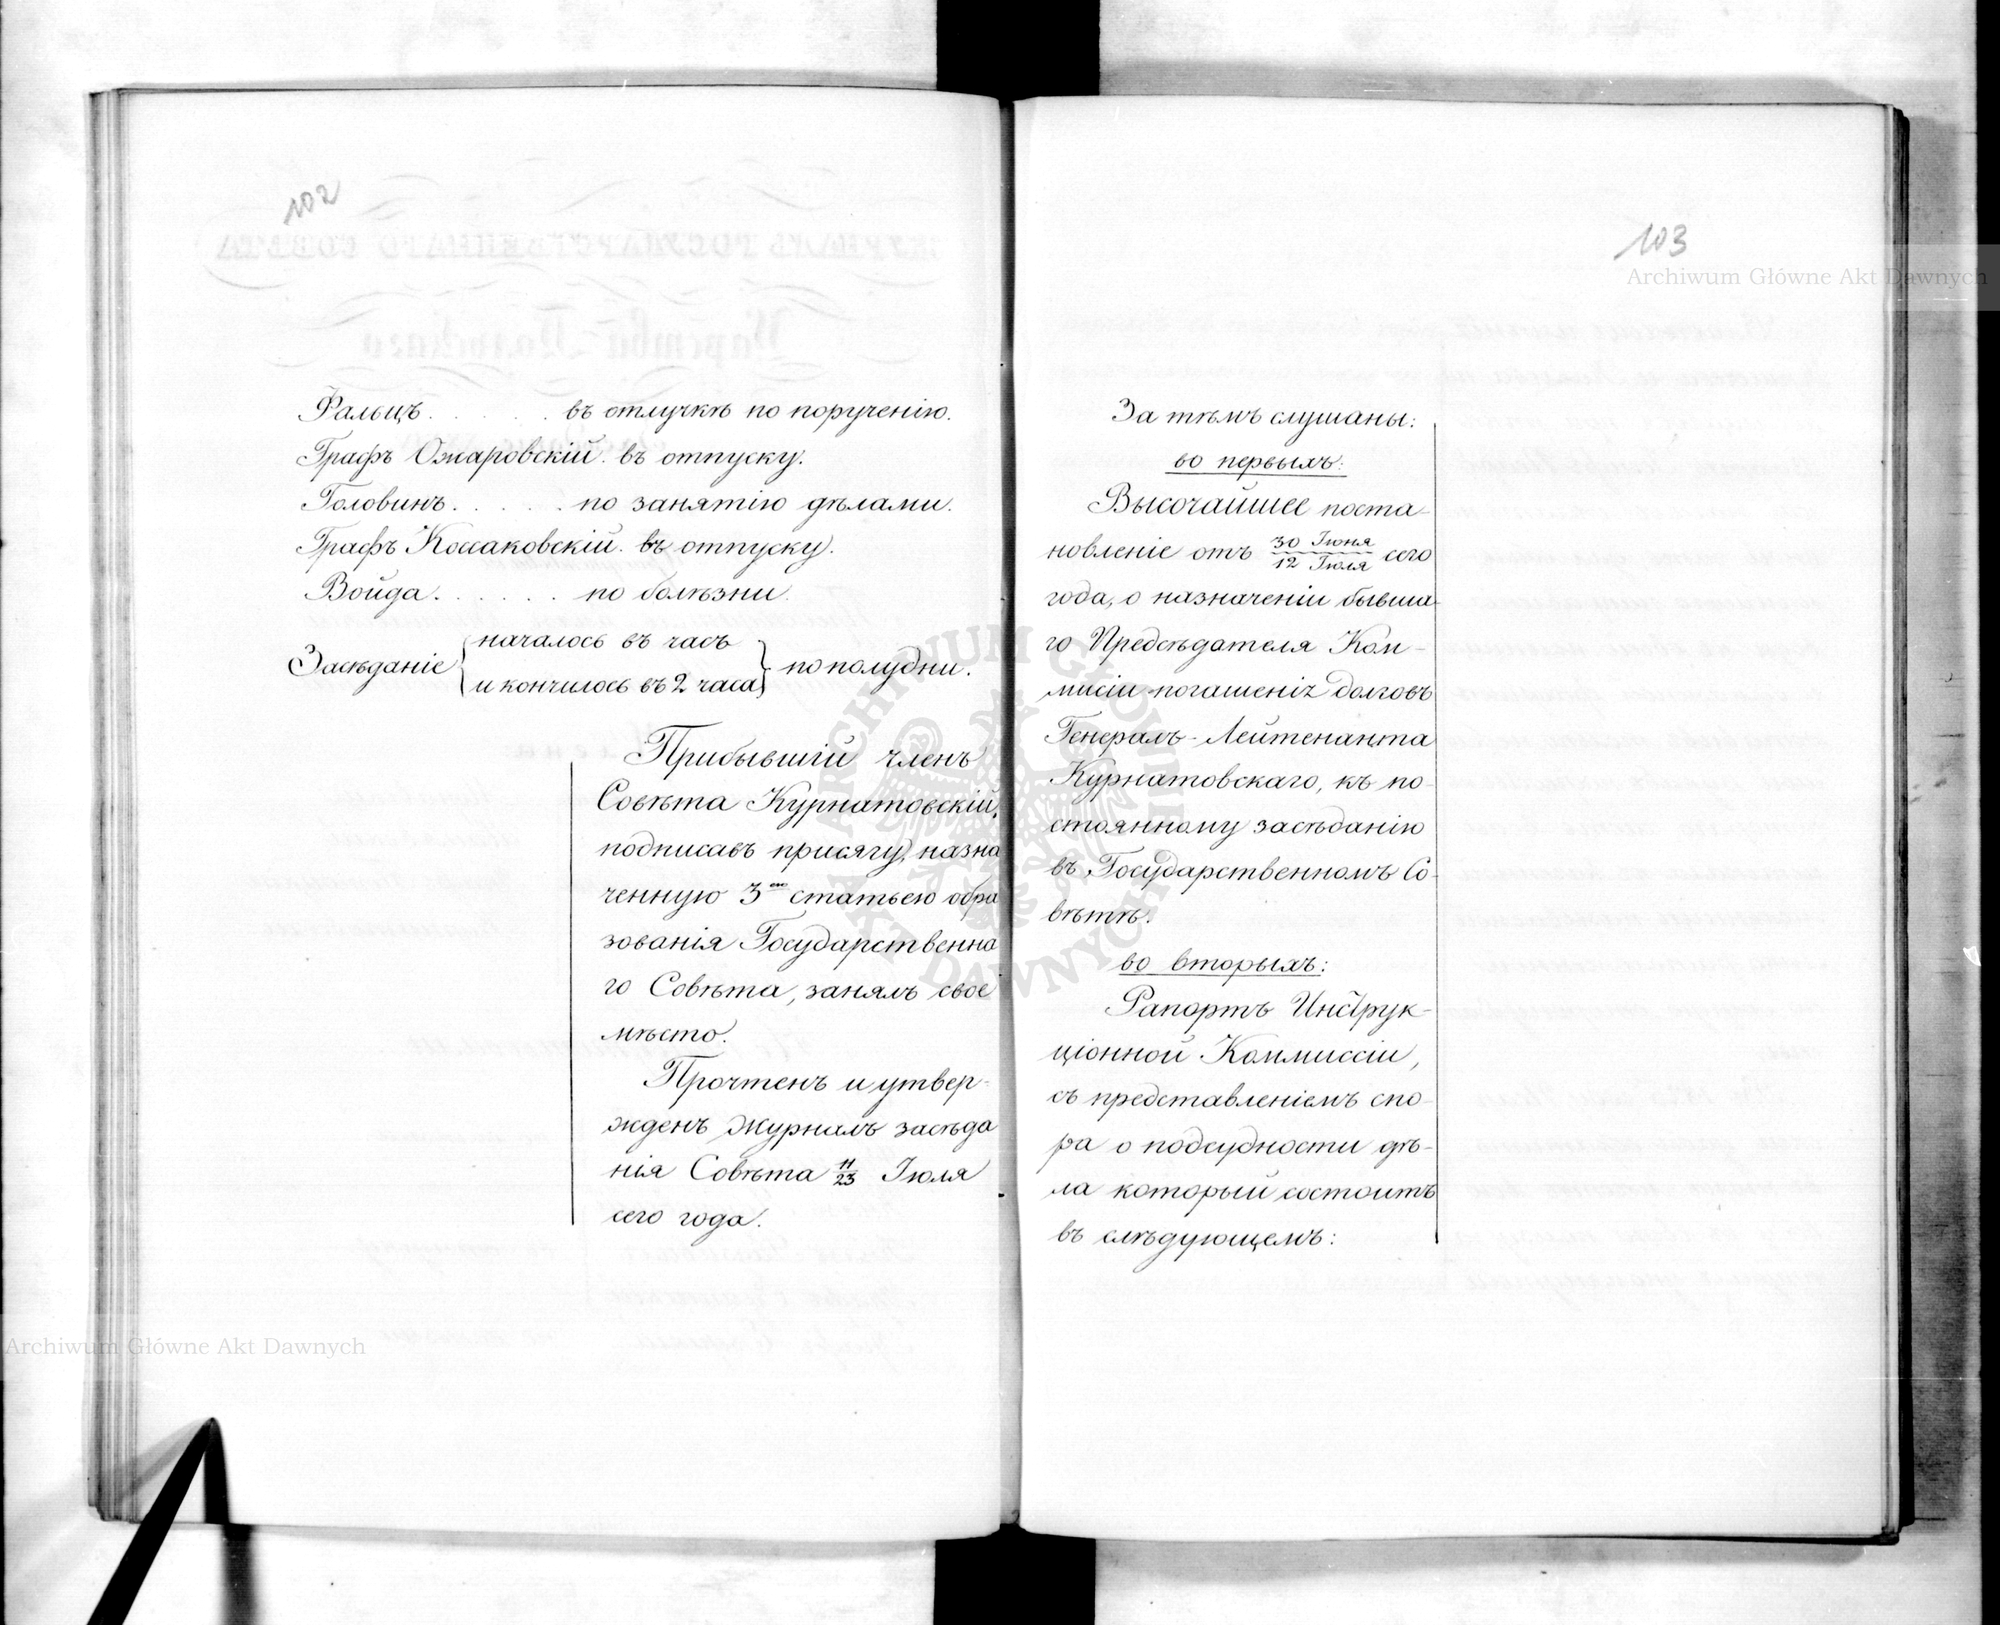 102
Фальцъ. . . . . . въ отлучкѣ по порученію.
Графъ Ожаровскій. въ отпуску.
Головинъ. . . . . . по занятію дѣлами.
Графъ Коссаковскій. въ отпуску.
Войда. . . . . . по болѣзни.
Засѣданіе { началось въ часъ
и кончилось въ 2 часа } по полудни.
Прибывшій членъ
Совѣта Курнатовскій,
подписавъ присягу, назна
ченную 3ею статьею обра
зованія Государственна
го Совѣта, занялъ свое
мѣсто.
Прочтенъ и утвер-
жденъ Журналъ засѣда
нія Совѣта 11/23 Іюля
сего года.
103
Archiwum Główne Akt Dawnych
За тѣмъ слушаны:
во первыхъ:
Высочайшее поста-
новленіе отъ 30 Іюня/12 Іюля сего
года, о назначеніи бывша-
го Предсѣдателя Ком-
мисіи погашенія долговъ
Генералъ-Лейтенанта
Курнатовскаго, къ по-
стоянному засѣданію
въ Государственномъ Со-
вѣтѣ.
во вторыхъ:
Рапортъ Инструк-
ціонной Коммиссіи,
съ представленіемъ спо-
ра о подсудности дѣ-
ла который состоитъ
въ слѣдующемъ:
ARCHIWUM GŁÓWNE AKT DAWNYCH
Archiwum Główne Akt Dawnych